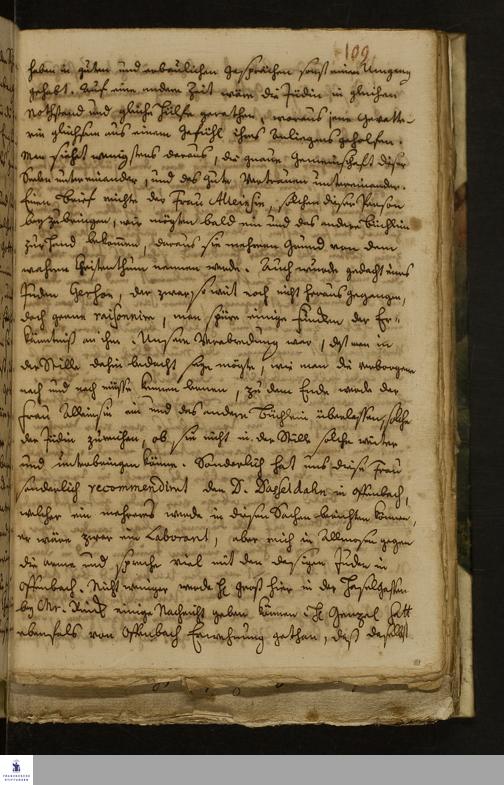 109
haben in guten und erbaulichen gesprächen sonst einen Umgang
gehabt. Auf eine andere Zeit wäre die Jüdin in gleichen
Nothstand und gleiche Hülfe gerathen, woraus jene
ein gleichsam aus einem Gefühl ihres Anliegens geholfen.
Man siehet wenigstens daraus, die genaue Gemeinschaft dieser
untereinander, und das gute Vertrauen untereinander.
Einen Brief reichte der Frau solchen dieser Person
beyzubringen, wir mögten bald ein und das andere Büchlein
zur Hand bekommen, daraus sie mehrern Grund von dem
wahren Christenthum nennen werde. Auch wurde gedacht eines
Juden Gerson, der zwar so weit noch nicht heraus gegangen,
doch gerne raisonnire, man spüre einige Funcken der Er-
käntniß an ihm. Unsere Verabredung war, daß man in
der Stille dahin bedacht seyn mögte, wie man die verborgene
nach und nach müsse kennen lernen, zu dem Ende wurde der
Frau ein und das andere Büchlein überlassen, solche
der Jüdin zureichen, ob sie nicht in der Stille solche weiter
und unterbringen könne. Sonderlich hat uns diese Frau
sonderlich recommendiret den D. in Offenbach,
welcher ein mehreres werde in diesen Sachen berichten können,
er wäre zwar ein Laborant, aber reich in Allmosen gegen
die arme und spreche viel mit den dasigen Juden in
Offenbach. Nicht weniger werde H. Groß hier in der Haselgassen
bey Mr. einige Nachricht geben können. H. hatt
ebenfals von Offenbach Erwehnung gethan, daß daselbst
FRANCKESCHE
STIFTUNGEN